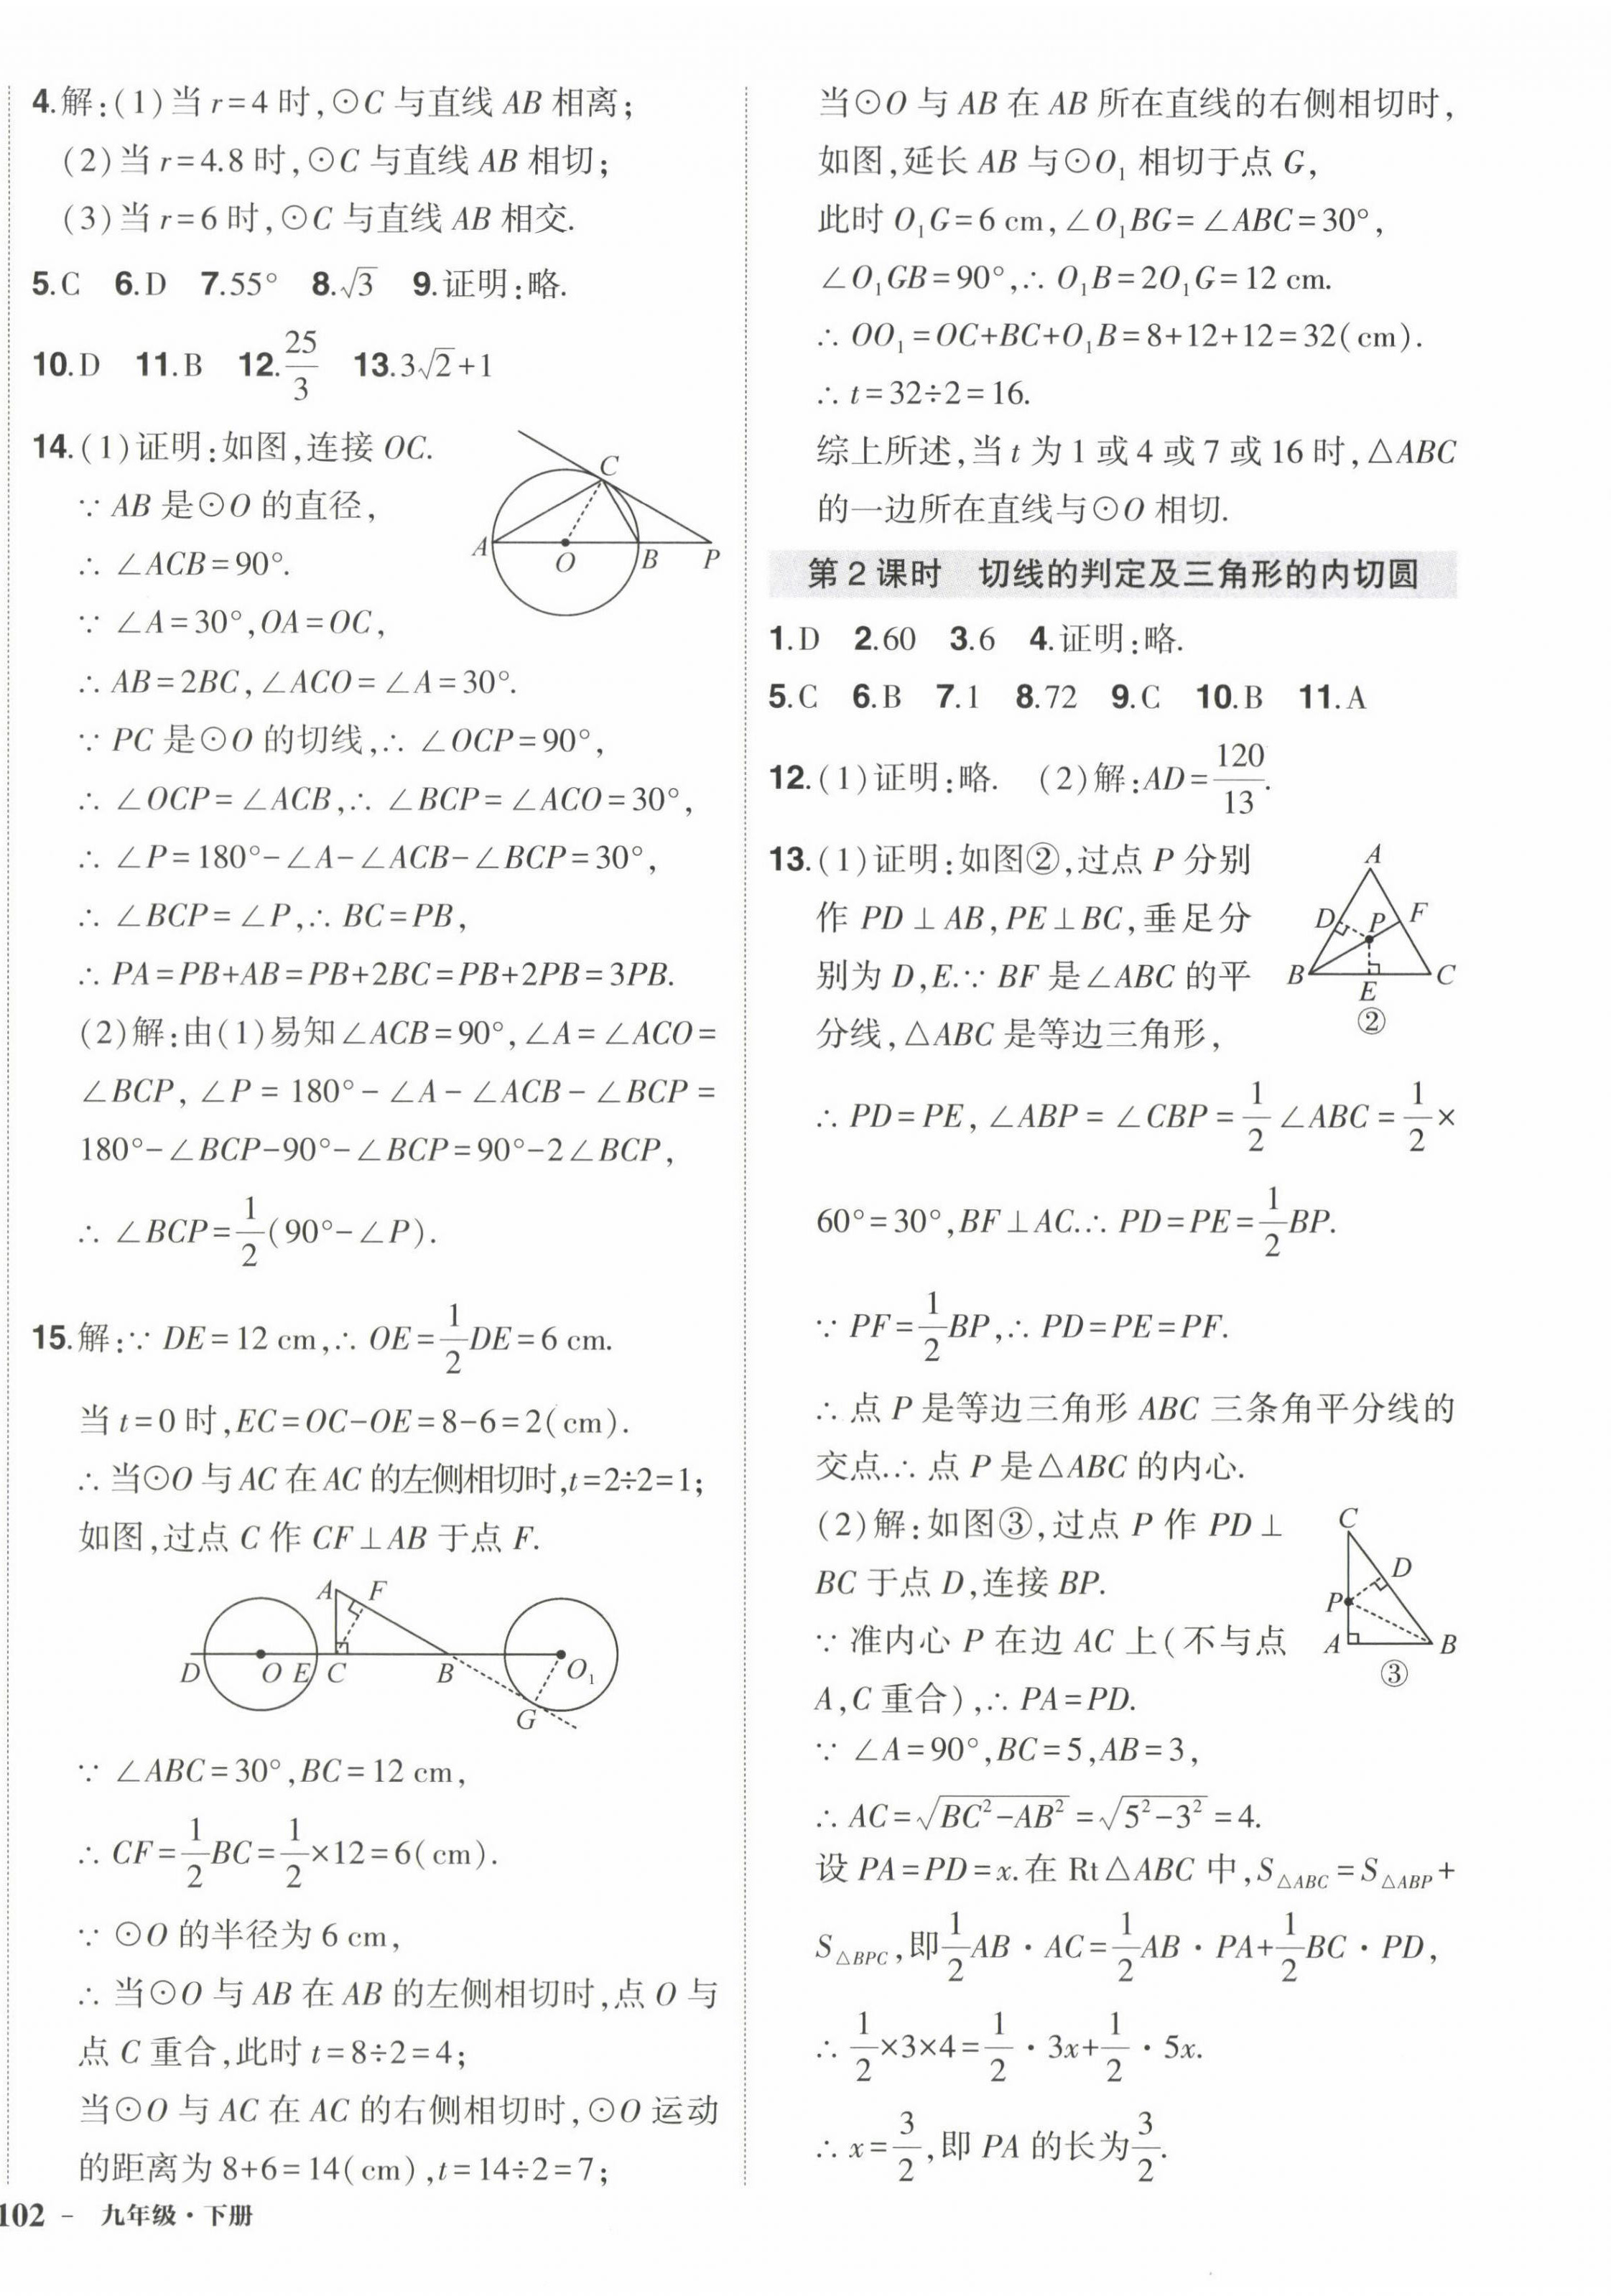 4.解:(1)当 r=4 时,⊙C 与直线 AB 相离;
(2)当 r=4.8 时,⊙C 与直线 AB 相切;
(3)当 r=6 时,⊙C 与直线 AB 相交.
5.C 6.D 7.55° 8.√3 9.证明:略.
10.D 11.B 12.25/3 13.3√2+1
14.(1)证明:如图,连接 OC.
∵ AB 是⊙O 的直径,
∴ ∠ACB=90°.
∵ ∠A=30°,OA=OC,
A O B P C
∴ AB=2BC,∠ACO=∠A=30°.
∵ PC 是⊙O 的切线,∴ ∠OCP=90°,
∴ ∠OCP=∠ACB,∴ ∠BCP=∠ACO=30°,
∴ ∠P=180°-∠A-∠ACB-∠BCP=30°,
∴ ∠BCP=∠P,∴ BC=PB,
∴ PA=PB+AB=PB+2BC=PB+2PB=3PB.
(2)解:由(1)易知∠ACB=90°,∠A=∠ACO=
∠BCP, ∠P = 180°-∠A-∠ACB-∠BCP =
180°-∠BCP-90°-∠BCP=90°-2∠BCP,
∴ ∠BCP=1/2(90°-∠P).
15.解:∵ DE=12 cm,∴ OE=1/2DE=6 cm.
当 t=0 时,EC=OC-OE=8-6=2(cm).
∴ 当⊙O 与 AC 在 AC 的左侧相切时,t=2÷2=1;
如图,过点 C 作 CF⊥AB 于点 F.
A F
D O E C B O₁
G
∵ ∠ABC=30°,BC=12 cm,
∴ CF=1/2BC=1/2×12=6(cm).
∵ ⊙O 的半径为 6 cm,
∴ 当⊙O 与 AB 在 AB 的左侧相切时,点 O 与
点 C 重合,此时 t=8÷2=4;
当⊙O 与 AC 在 AC 的右侧相切时,⊙O 运动
的距离为 8+6=14(cm),t=14÷2=7;
102 - 九年级·下册
当⊙O 与 AB 在 AB 所在直线的右侧相切时,
如图,延长 AB 与⊙O₁ 相切于点 G,
此时 O₁G=6 cm,∠O₁BG=∠ABC=30°,
∠O₁GB=90°,∴ O₁B=2O₁G=12 cm.
∴ OO₁=OC+BC+O₁B=8+12+12=32(cm).
∴ t=32÷2=16.
综上所述,当 t 为 1 或 4 或 7 或 16 时,△ABC
的一边所在直线与⊙O 相切.
第 2 课时 切线的判定及三角形的内切圆
1.D 2.60 3.6 4.证明:略.
5.C 6.B 7.1 8.72 9.C 10.B 11.A
12.(1)证明:略. (2)解:AD=120/13.
13.(1)证明:如图②,过点 P 分别
作 PD⊥AB,PE⊥BC,垂足分
别为 D,E.∵ BF 是∠ABC 的平
分线,△ABC 是等边三角形,
A
D P F
B E C
②
∴ PD=PE,∠ABP=∠CBP=1/2∠ABC=1/2×
60°=30°,BF⊥AC.∴ PD=PE=1/2BP.
∵ PF=1/2BP,∴ PD=PE=PF.
∴ 点 P 是等边三角形 ABC 三条角平分线的
交点.∴ 点 P 是△ABC 的内心.
(2)解:如图③,过点 P 作 PD⊥
BC 于点 D,连接 BP.
∵ 准内心 P 在边 AC 上(不与点
A,C 重合),∴ PA=PD.
C
D
P
A B
③
∵ ∠A=90°,BC=5,AB=3,
∴ AC=√(BC²-AB²)=√(5²-3²)=4.
设 PA=PD=x.在 Rt△ABC 中,S△ABC=S△ABP+
S△BPC,即1/2AB·AC=1/2AB·PA+1/2BC·PD,
∴ 1/2×3×4=1/2·3x+1/2·5x.
∴ x=3/2,即 PA 的长为3/2.